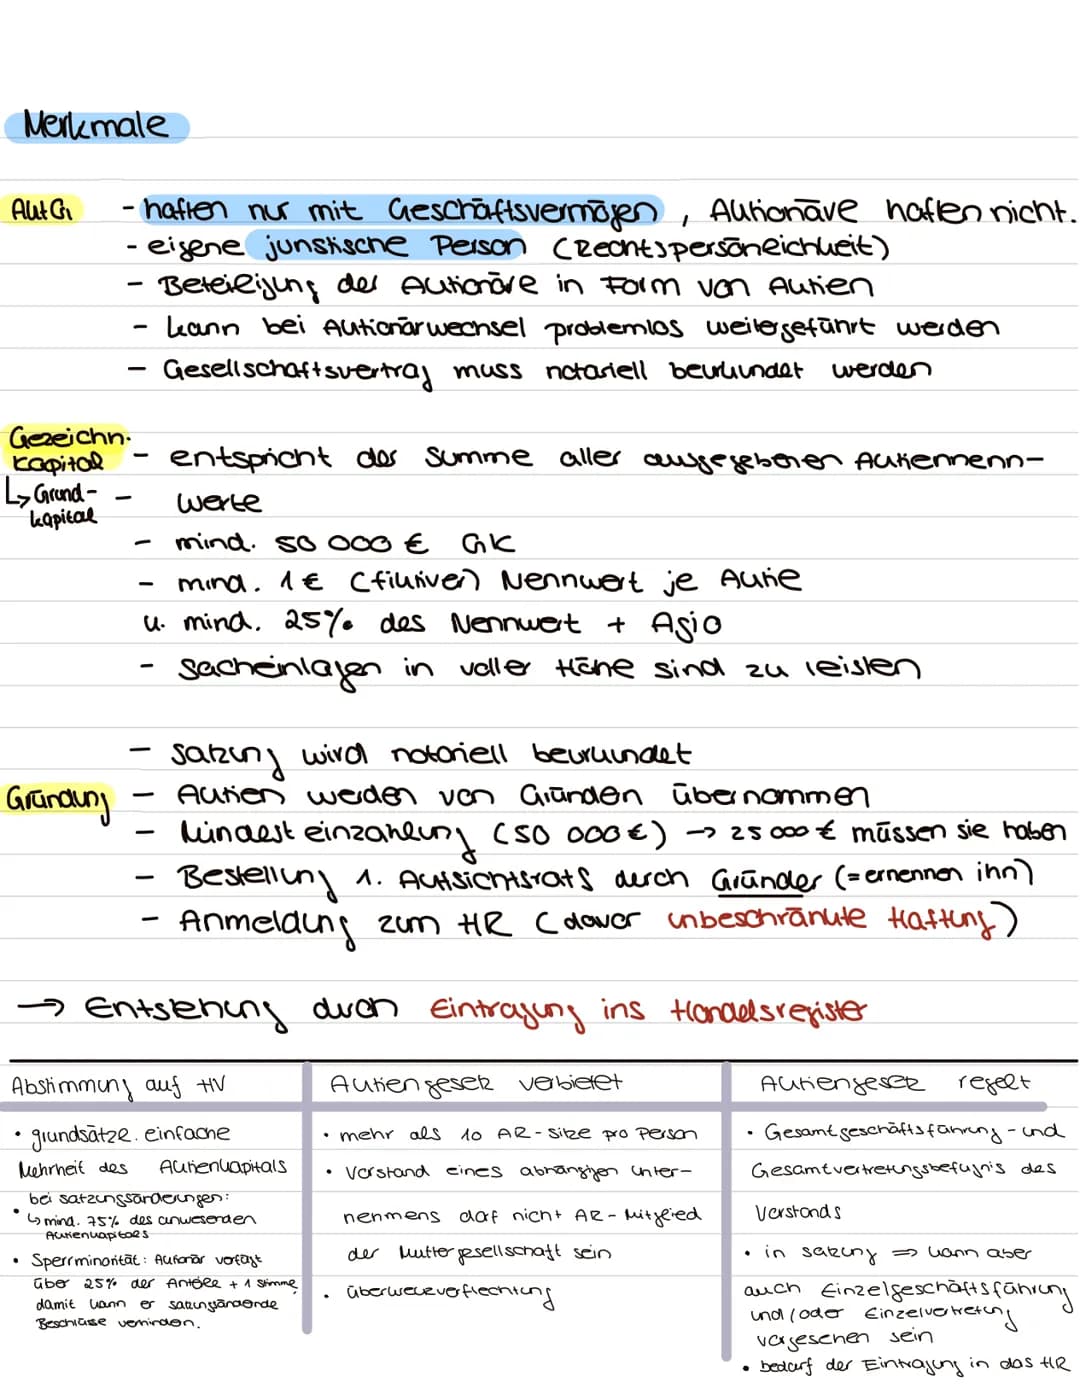 Merkmale
AktG - haften nur mit Geschäftsvermögen, Aktionäre haften nicht.
- eigene juristische Person (Rechtspersöneichkeit)
- Beteiligung der Aktionäre in Form von Aktien
- kann bei Aktionärwechsel problemlos weitergeführt werden
- Gesellschaftsvertrag muss notariell beurkundet werden
Gezeichn. Kapitol - entspricht der Summe aller ausgegebenen Aktiennenn-
↳ Grund-kapital - werte
- mind. 50 000 € GK
- mind. 1 € (fiktiver) Nennwert je Aktie
u. mind. 25% des Nennwert + Agio
- Sacheinlagen in voller Höhe sind zu leisten
- Satzung wird notariell beurkundet
Gründung - Aktien werden von Gründen übernommen
- Mindesteinzahlung (50 000€) → 25 000 € müssen sie haben
- Bestellung 1. Aufsichtsrats durch Gründer (= ernennen ihn)
- Anmeldung zum HR (davor unbeschränkte Haftung)
→ Entstehung durch Eintragung ins Handelsregister
Abstimmung auf HV
• grundsätzl. einfache
Mehrheit des Aktienkapitals
• bei Satzungsänderungen:
↳ mind. 75% des anwesenden
Aktienkapitals
• Sperrminorität: Aktionär verfügt
über 25% der Anteile + 1 Stimme,
damit kann er satzungsändernde
Beschlüsse verhindern.
Aktiengesetz verbietet
• mehr als 10 AR-Sitze pro Person
• Vorstand eines abhängigen Unter-
nehmens darf nicht AR-Mitglied
der Muttergesellschaft sein
• überkreuzverflechtung
Aktiengesetz regelt
• Gesamtgeschäftsführung- und
Gesamtvertretungsbefugnis des
Vorstands
• in Satzung ⇒ kann aber
auch Einzelgeschäftsführung
und/oder Einzelvertretung
vorgesehen sein
• bedarf der Eintragung in das HR